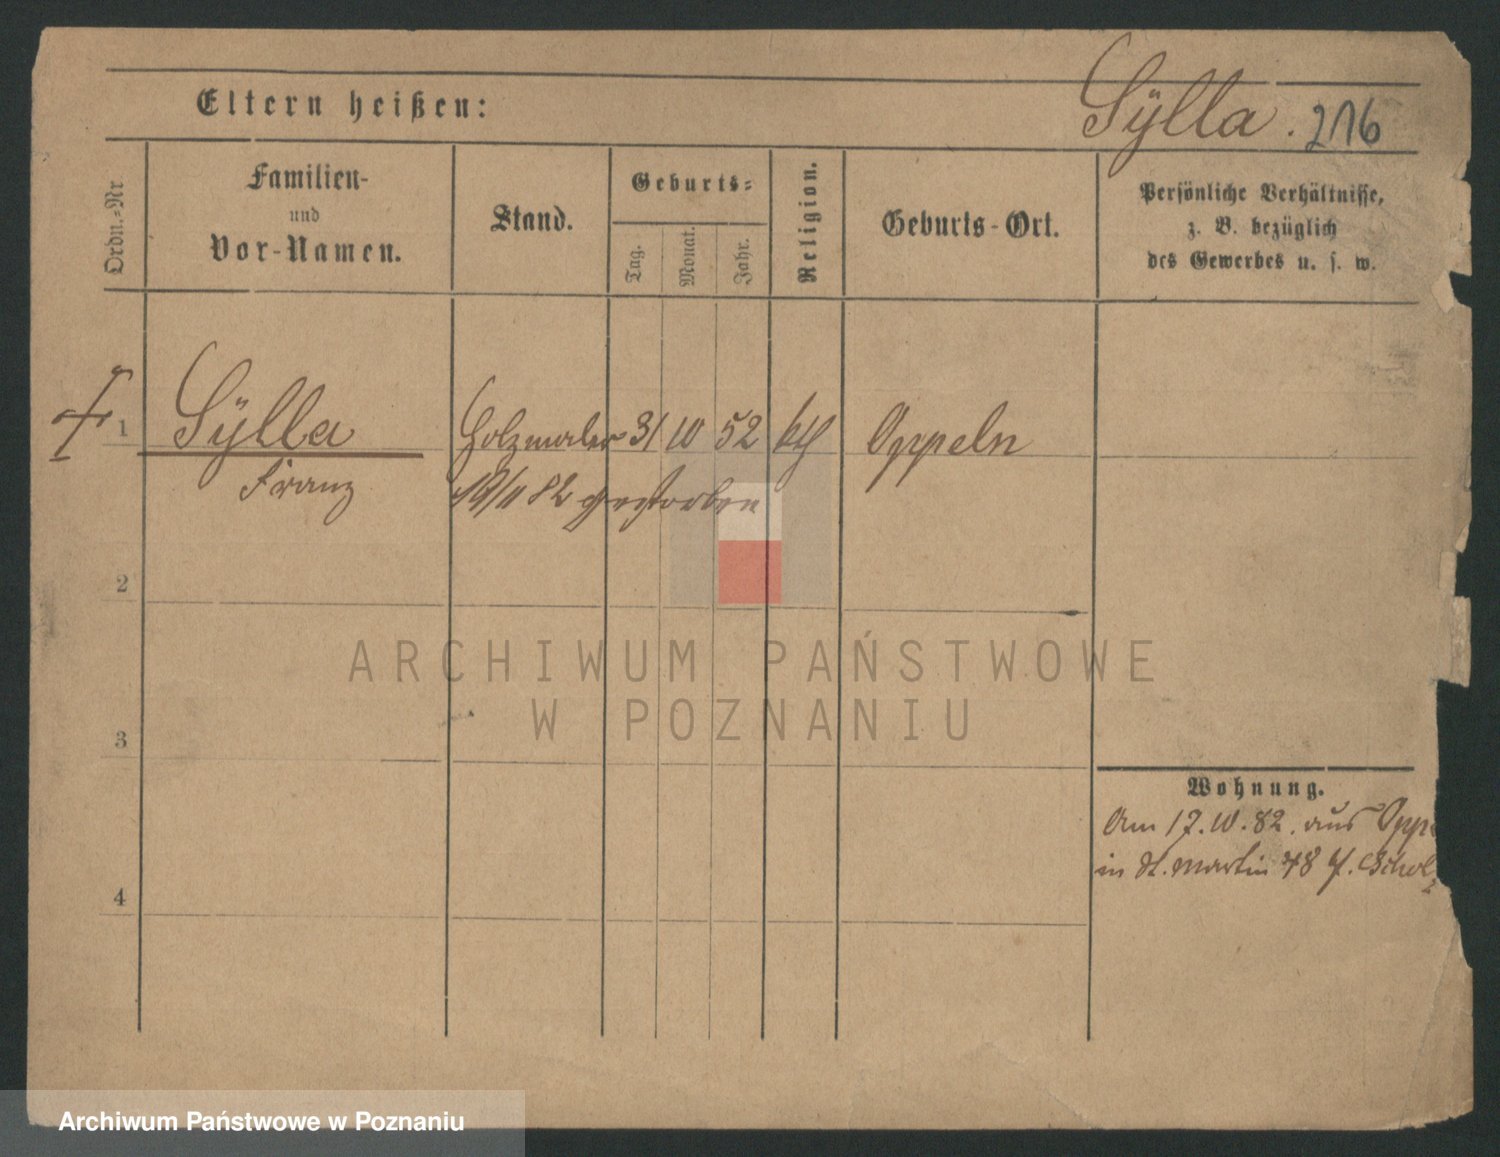 Eltern heißen:
Sÿlla. 216
Ordn.=Nr
Familien-
und
Vor-Namen.
Stand.
Geburts=
Tag.
Monat.
Jahr.
Religion.
Geburts-Ort.
Persönliche Verhältnisse,
z. B. bezüglich
des Gewerbes u. s. w.
1 Sÿlla Holzmaler 31 10 52 kth Oppeln
Franz 19/11 82 gestorben
2
3
4
Wohnung.
Am 17.10.82. aus Opp
in St. Martin 48 b. Scholz
ARCHIWUM PAŃSTWOWE
W POZNANIU
Archiwum Państwowe w Poznaniu